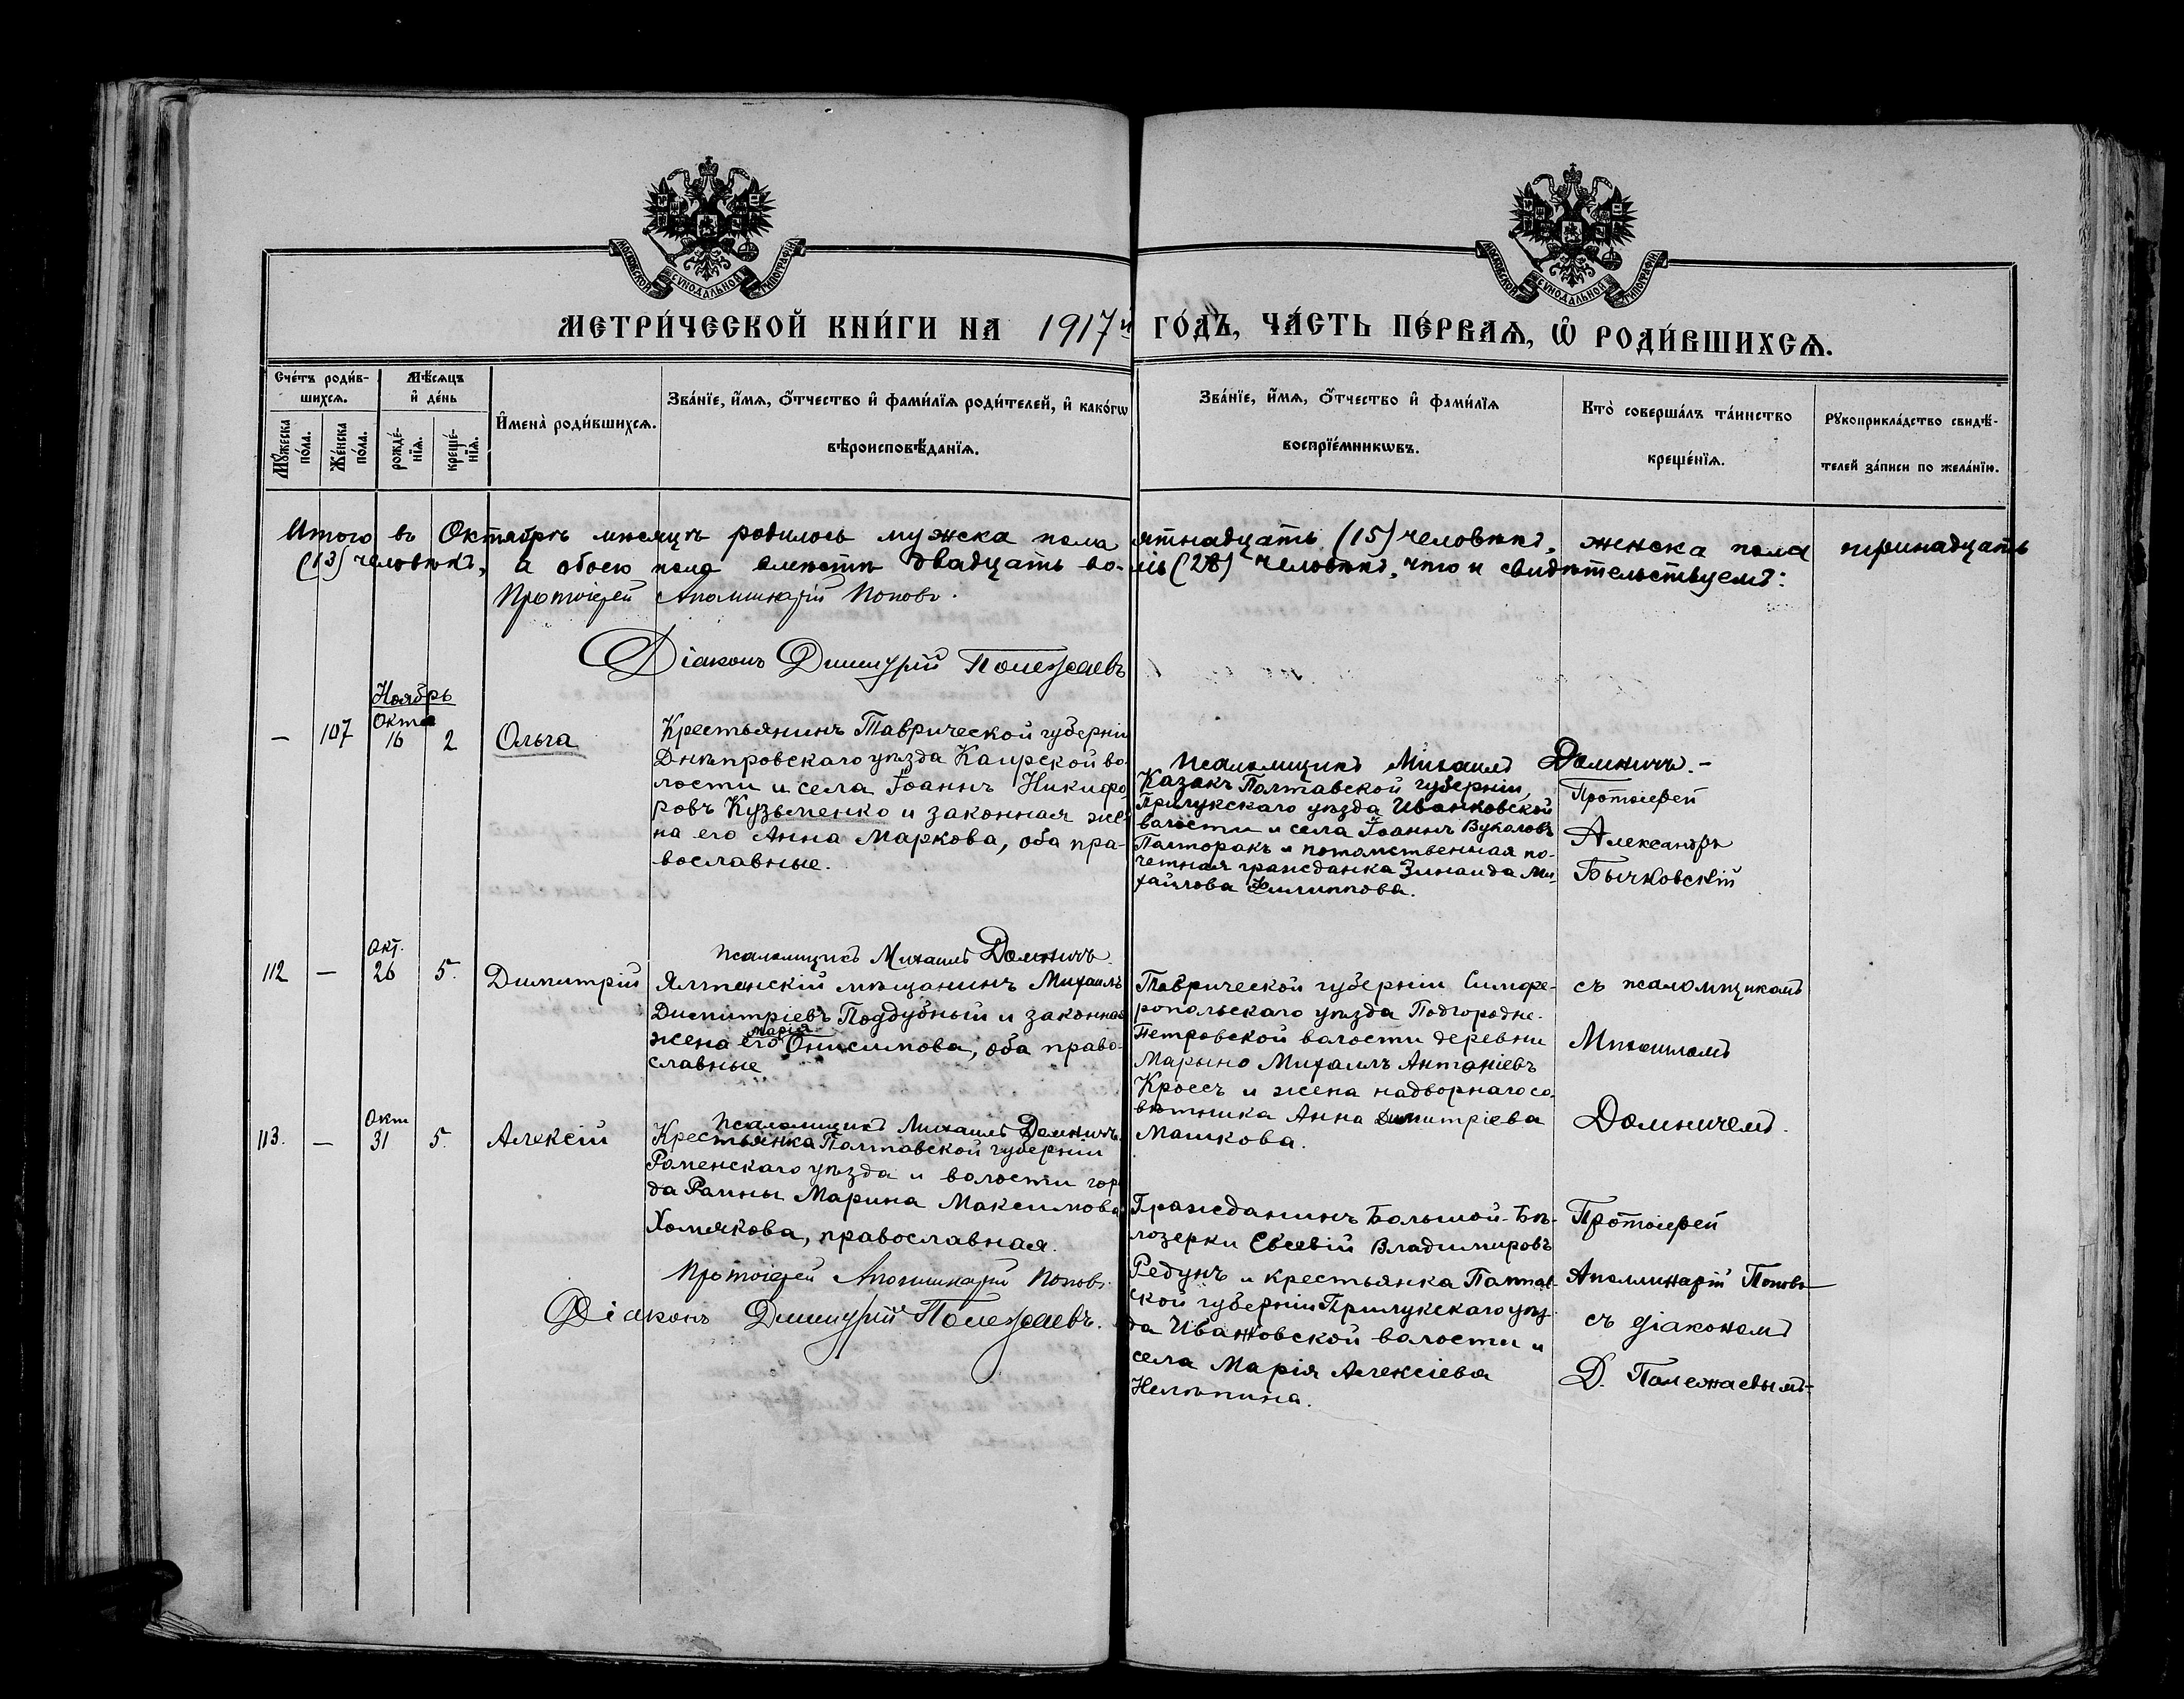 МОСКОВСКОЙ СѴНОДАЛЬНОЙ ТИПОГРАФІИ
МОСКОВСКОЙ СѴНОДАЛЬНОЙ ТИПОГРАФІИ
МЕТРИ́ЧЕСКОЙ КНИ́ГИ НА 1917й ГО́ДЪ, ЧА́СТЬ ПЕ́РВАѦ, Ѡ РОДИ́ВШИХСѦ.
Сче́тъ роди́в-
шихсѧ.
Мꙋ́жеска по́ла.
Же́нска по́ла.
Мѣ́сѧцъ
и҆ де́нь
рожде́-
нїѧ.
креще́-
нїѧ.
И҆менà роди́вшихсѧ.
Зва́нїе, и҆́мѧ, ѻ҆́тчество и҆ фами́лїѧ роди́телей, и҆ како́гѡ
вѣроисповѣ́данїѧ.
Зва́нїе, и҆́мѧ, ѻ҆́тчество и҆ фами́лїѧ
воспрїе́мникѡвъ.
Кто̀ соверша́лъ та́инство
креще́нїѧ.
Рꙋкоприкла́дство свидѣ́-
телей за́писи по жела́нїю.
Итого въ Октябрѣ мѣсяцѣ родилось мужска пола ятнадцать (15) человѣкъ, женска пола тринадцать
(13) человѣкъ, а обоего пола вмѣстѣ двадцать во- мь (28) человѣкъ, что и свидѣтельствуемъ:
Протоіерей Аполлинарій Поповъ.
Діаконъ Димитрій Полежаевъ
Ноябрь
— 107 Окт 16 2 Ольга
Крестьянинъ Таврической губерніи
Днѣпровскаго уѣзда Каирской во-
лости и села Іоаннъ Никифо-
ровъ Кузьменко и законная же-
на его Анна Маркова, оба пра-
вославные.
Псаломщикъ Михаилъ Домничъ.-
Казакъ Полтавской губерніи,
Прилукскаго уѣзда Иванковской
волости и села Іоаннъ Вуколовъ
Полторакъ и потомственная по-
четная гражданка Зинаида Ми-
хайлова Филиппова.
Протоіерей
Александръ
Бычковскій
Псаломщикъ Михаилъ Домничъ
112 — Окт. 26 5. Димитрій
Ялтенскій мѣщанинъ Михаилъ
Димитріевъ Поддубный и законная
марія
жена его Онисимова, оба право-
славные
Таврической губерніи Симфе-
ропольскаго уѣзда Подгородне-
Петровской волости деревни
Марьино Михаилъ Антоніевъ
Кроссъ и жена надворнаго со-
вѣтника Анна Димитріева
Машкова.
съ псаломщикомъ
Михаиломъ
Домничемъ.
Псаломщикъ Михаилъ Домничъ.
113. — Окт 31 5. Алексій
Крестьянка Полтавской губерніи
Роменскаго уѣзда и волости горо
да Ромны Марина Максимова
Хомякова, православная.
Гражданинъ Большой-Бѣ-
лозерки Евсевій Владимировъ
Редунъ и крестьянка Полтав
ской губерніи Прилукскаго уѣз-
да Ивановской волости и
села Марія Алексіева
Нелѣпина.
Протоіерей
Аполлинарій Поповъ
съ діакономъ
Д. Полежаевымъ
Протоіерей Аполлинарій Поповъ.
Діаконъ Димитрій Полежаевъ.